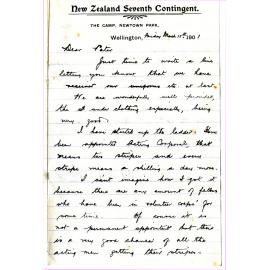 New Zealand Seventh Contingent.
THE CAMP, NEWTOWN PARK,
Wellington, Friday March 15th 1901
Dear Peter
Just time to write a line
letting you know that we have
received our uniforms etc. at last.
We are wonderfully well provided,
the underclothing especially, being
very good.
I have started up the ladder. Have
been appointed Acting Corporal, that
means two stripes and every
stripe means a shilling a day more.
I can't imagine how I got it
because there are any amount of fellows
who have been in volunteer corps for
some time. Of course it is
not a permanent appointment but there
is a very good chance of all the
acting men getting their stripes.